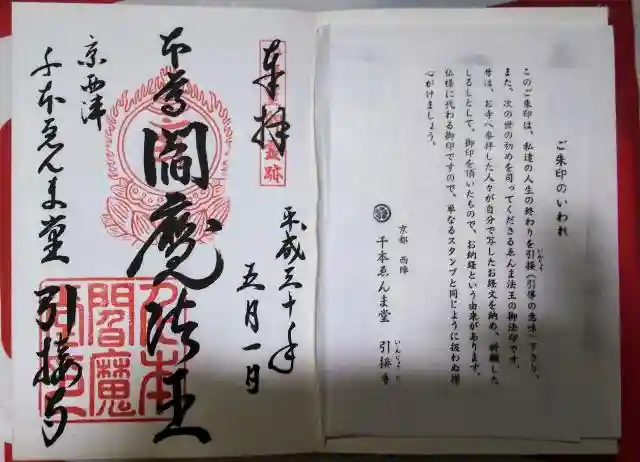 ご朱印のいわれ
このご朱印は、私達の人生の終わりを引接（引導の意味）下さり、
いんじょう
また、次の世の初めを司ってくださるゑんま法王の御法印です。
昔は、お寺へ参拝した人々が自分で写したお経文を納め、祈願した
しるしとして、御印を頂いたもので、お納経という由来があります。
仏様に代わる御印ですので、単なるスタンプと同じように扱わぬ様
心がけましょう。
京都 西陣
千本ゑんま堂 引接寺
いんじょうじ
奉拝
霊跡
平成三十年
五月一日
本尊 閻魔法王
京西陣
千本ゑんま堂 引接寺
閻魔